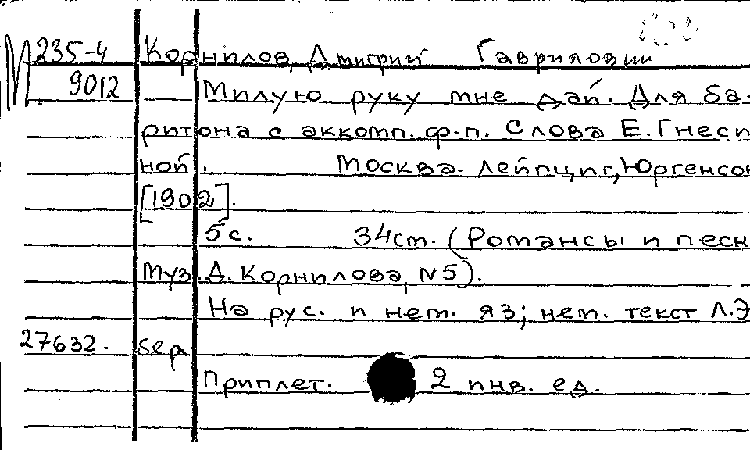 М 235-4 Корнилов, Дмитрий Гаврилович
9012 Милую руку мне дай. Для ба-
ритона с аккомп. ф.-п. Слова Е. Гнесин
ной. Москва. Лейпциг, Юргенсон
[1902].
5с. 34см. (Романсы и песн
муз. Д. Корнилова, N5).
На рус. и нем. яз; нем. текст Л.Э
27632.
Приплет. 2 инв. ед.